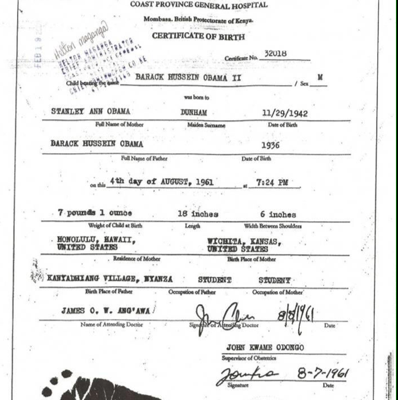 COAST PROVINCE GENERAL HOSPITAL
Mombasa, British Protectorate of Kenya.
CERTIFICATE OF BIRTH
Certificate No. 32018
Child bearing the name BARACK HUSSEIN OBAMA II / Sex M
was born to
STANLEY ANN OBAMA DUNHAM 11/29/1942
Full Name of Mother Maiden Surname Date of Birth
BARACK HUSSEIN OBAMA 1936
Full Name of Father Date of Birth
on this 4th day of AUGUST, 1961 at 7:24 PM
7 pounds 1 ounce 18 inches 6 inches
Weight of Child at Birth Length Width Between Shoulders
HONOLULU, HAWAII, WICHITA, KANSAS,
UNITED STATES UNITED STATES
Residence of Mother Birth Place of Mother
VILLAGE, NYANZA STUDENT STUDENT
Birth Place of Father Occupation of Father Occupation of Mother
JAMES O. W. ANG'AWA 8/8/1961
Name of Attending Doctor Signature of Attending Doctor Date
JOHN KWAME ODONGO
Supervisor of Obstetrics
8-7-1961
Signature Date